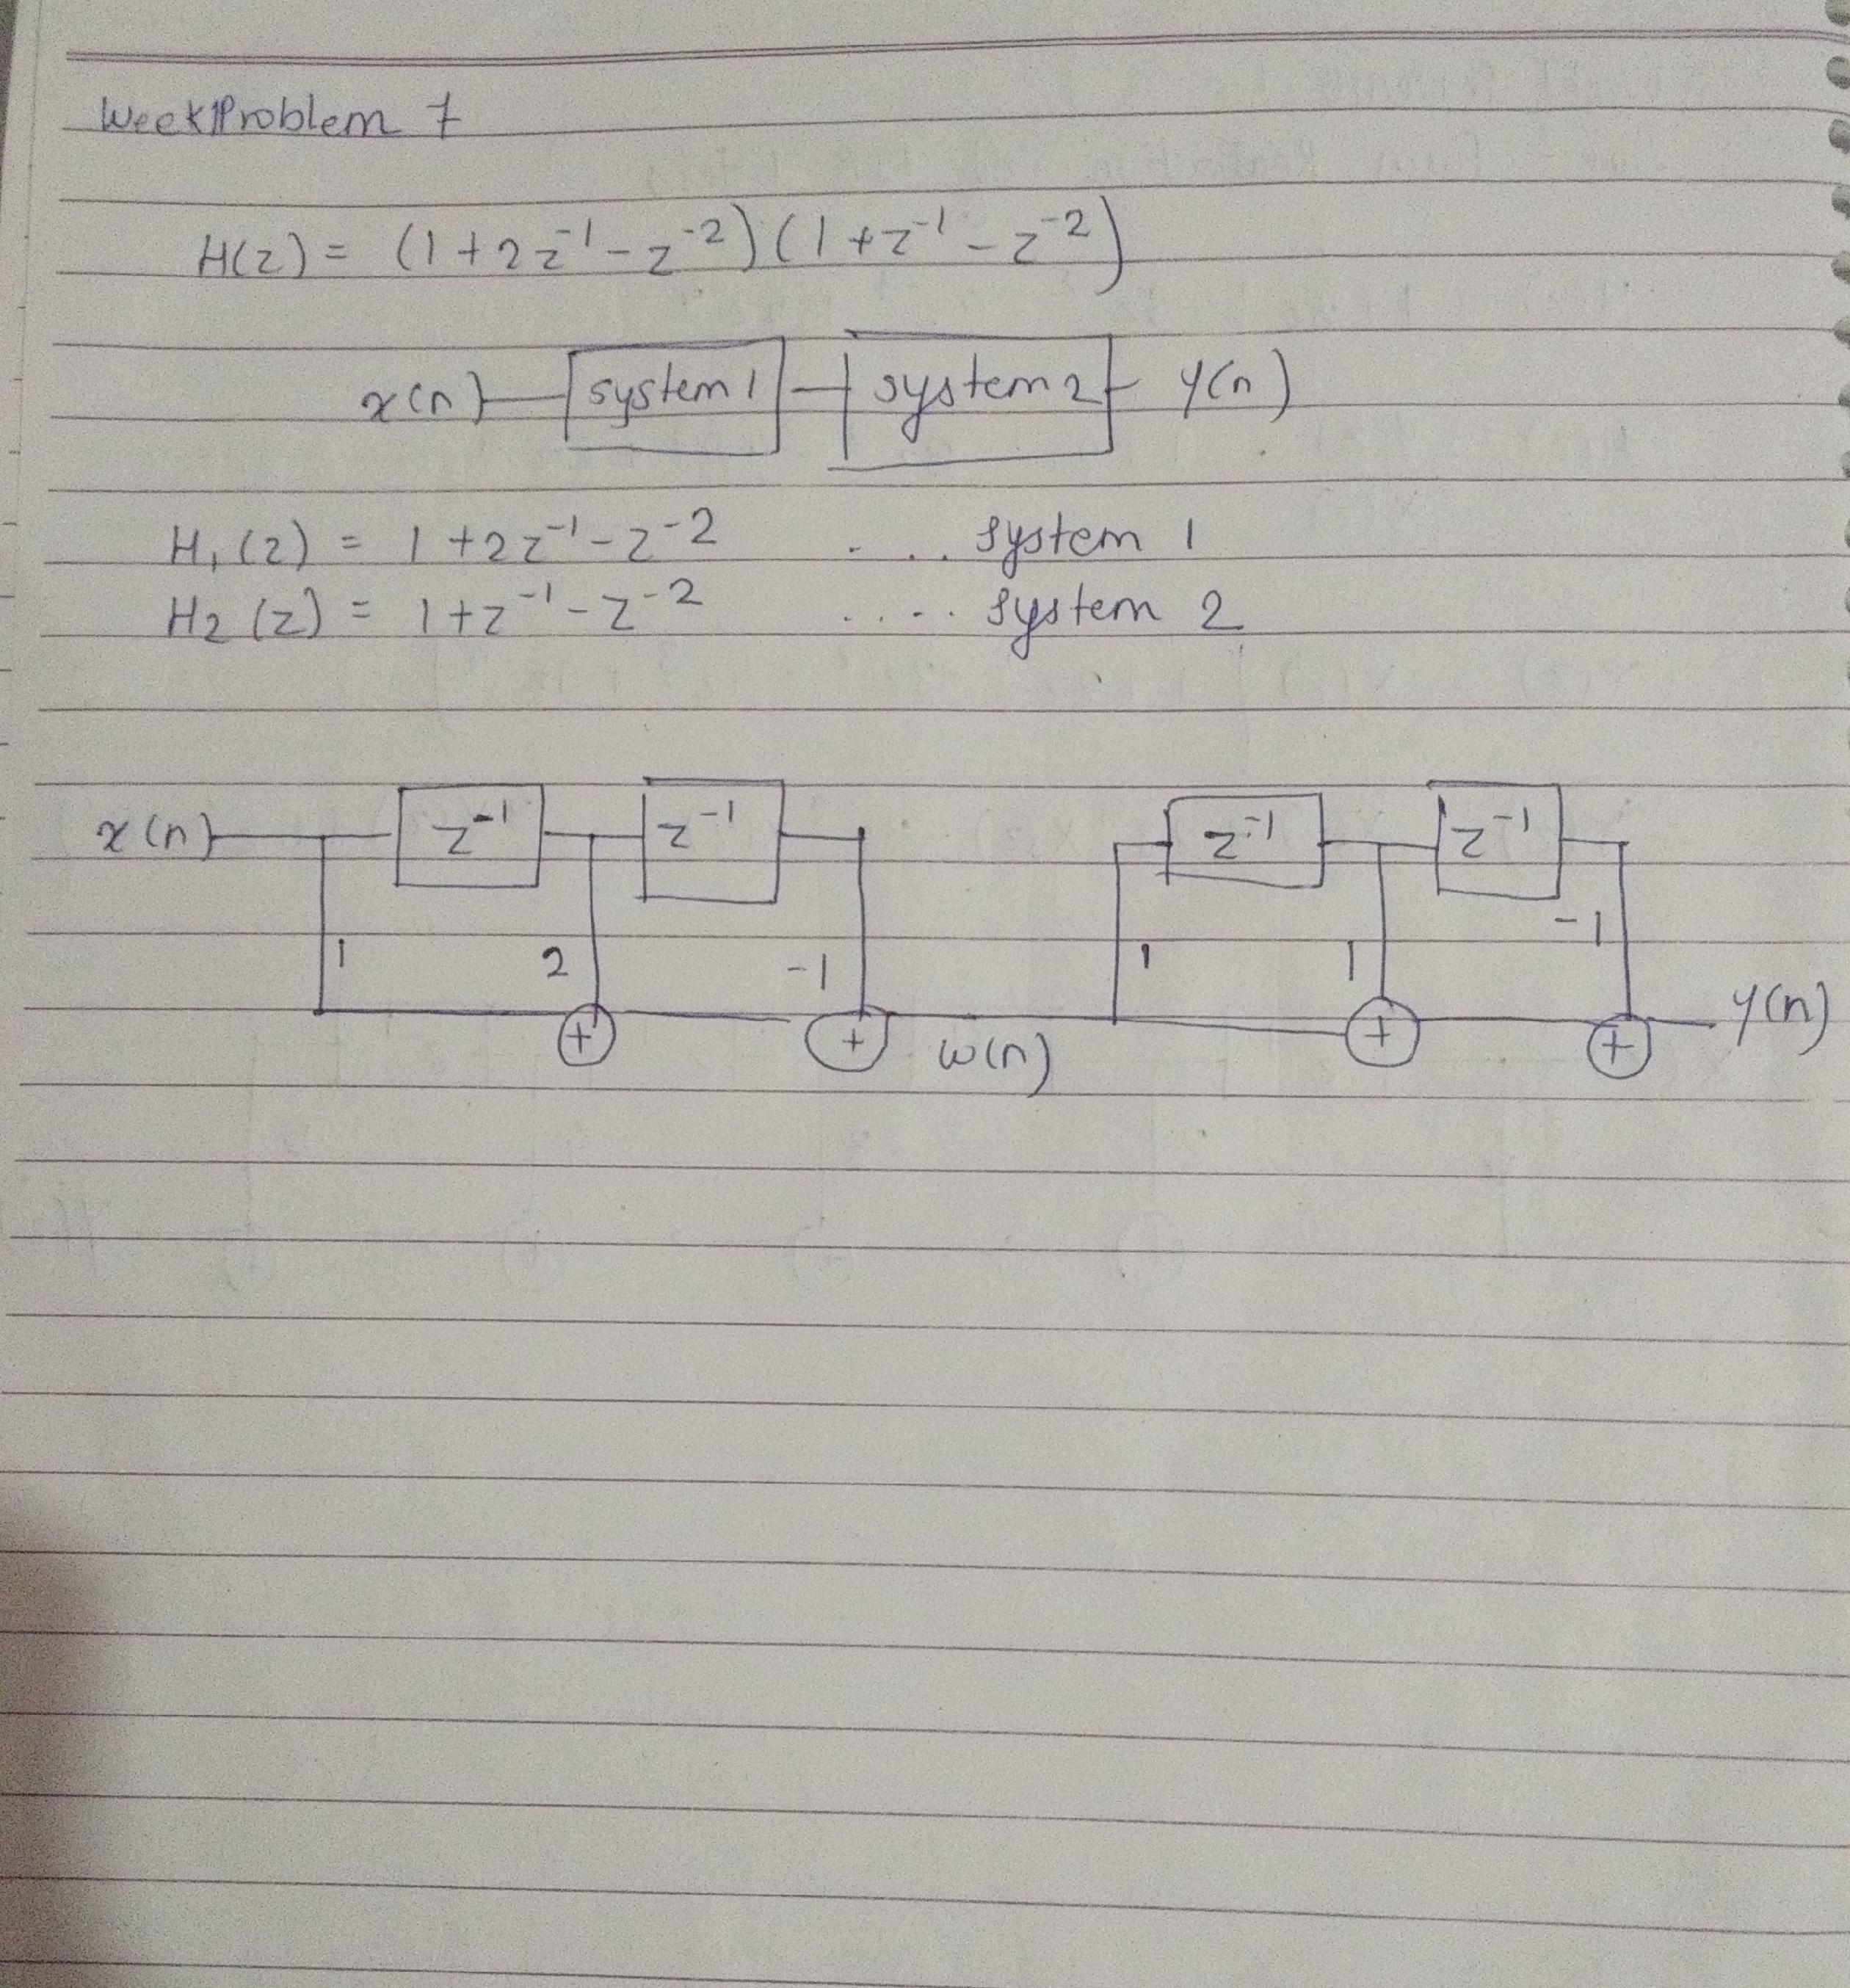 Week1Problem 7
H(z) = (1 + 2z⁻¹ - z⁻²)(1 + z⁻¹ - z⁻²)
x(n) system 1 system 2 y(n)
H₁(z) = 1 + 2z⁻¹ - z⁻² .... system 1
H2(z) = 1 + z⁻¹ - z⁻² .... system 2
x(n) z⁻¹ z⁻¹ z⁻¹ z⁻¹
1 2 -1 1 1 -1
+ + w(n) + + y(n)